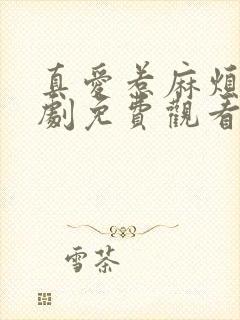 真愛惹麻煩
劇免費觀看
雪茶